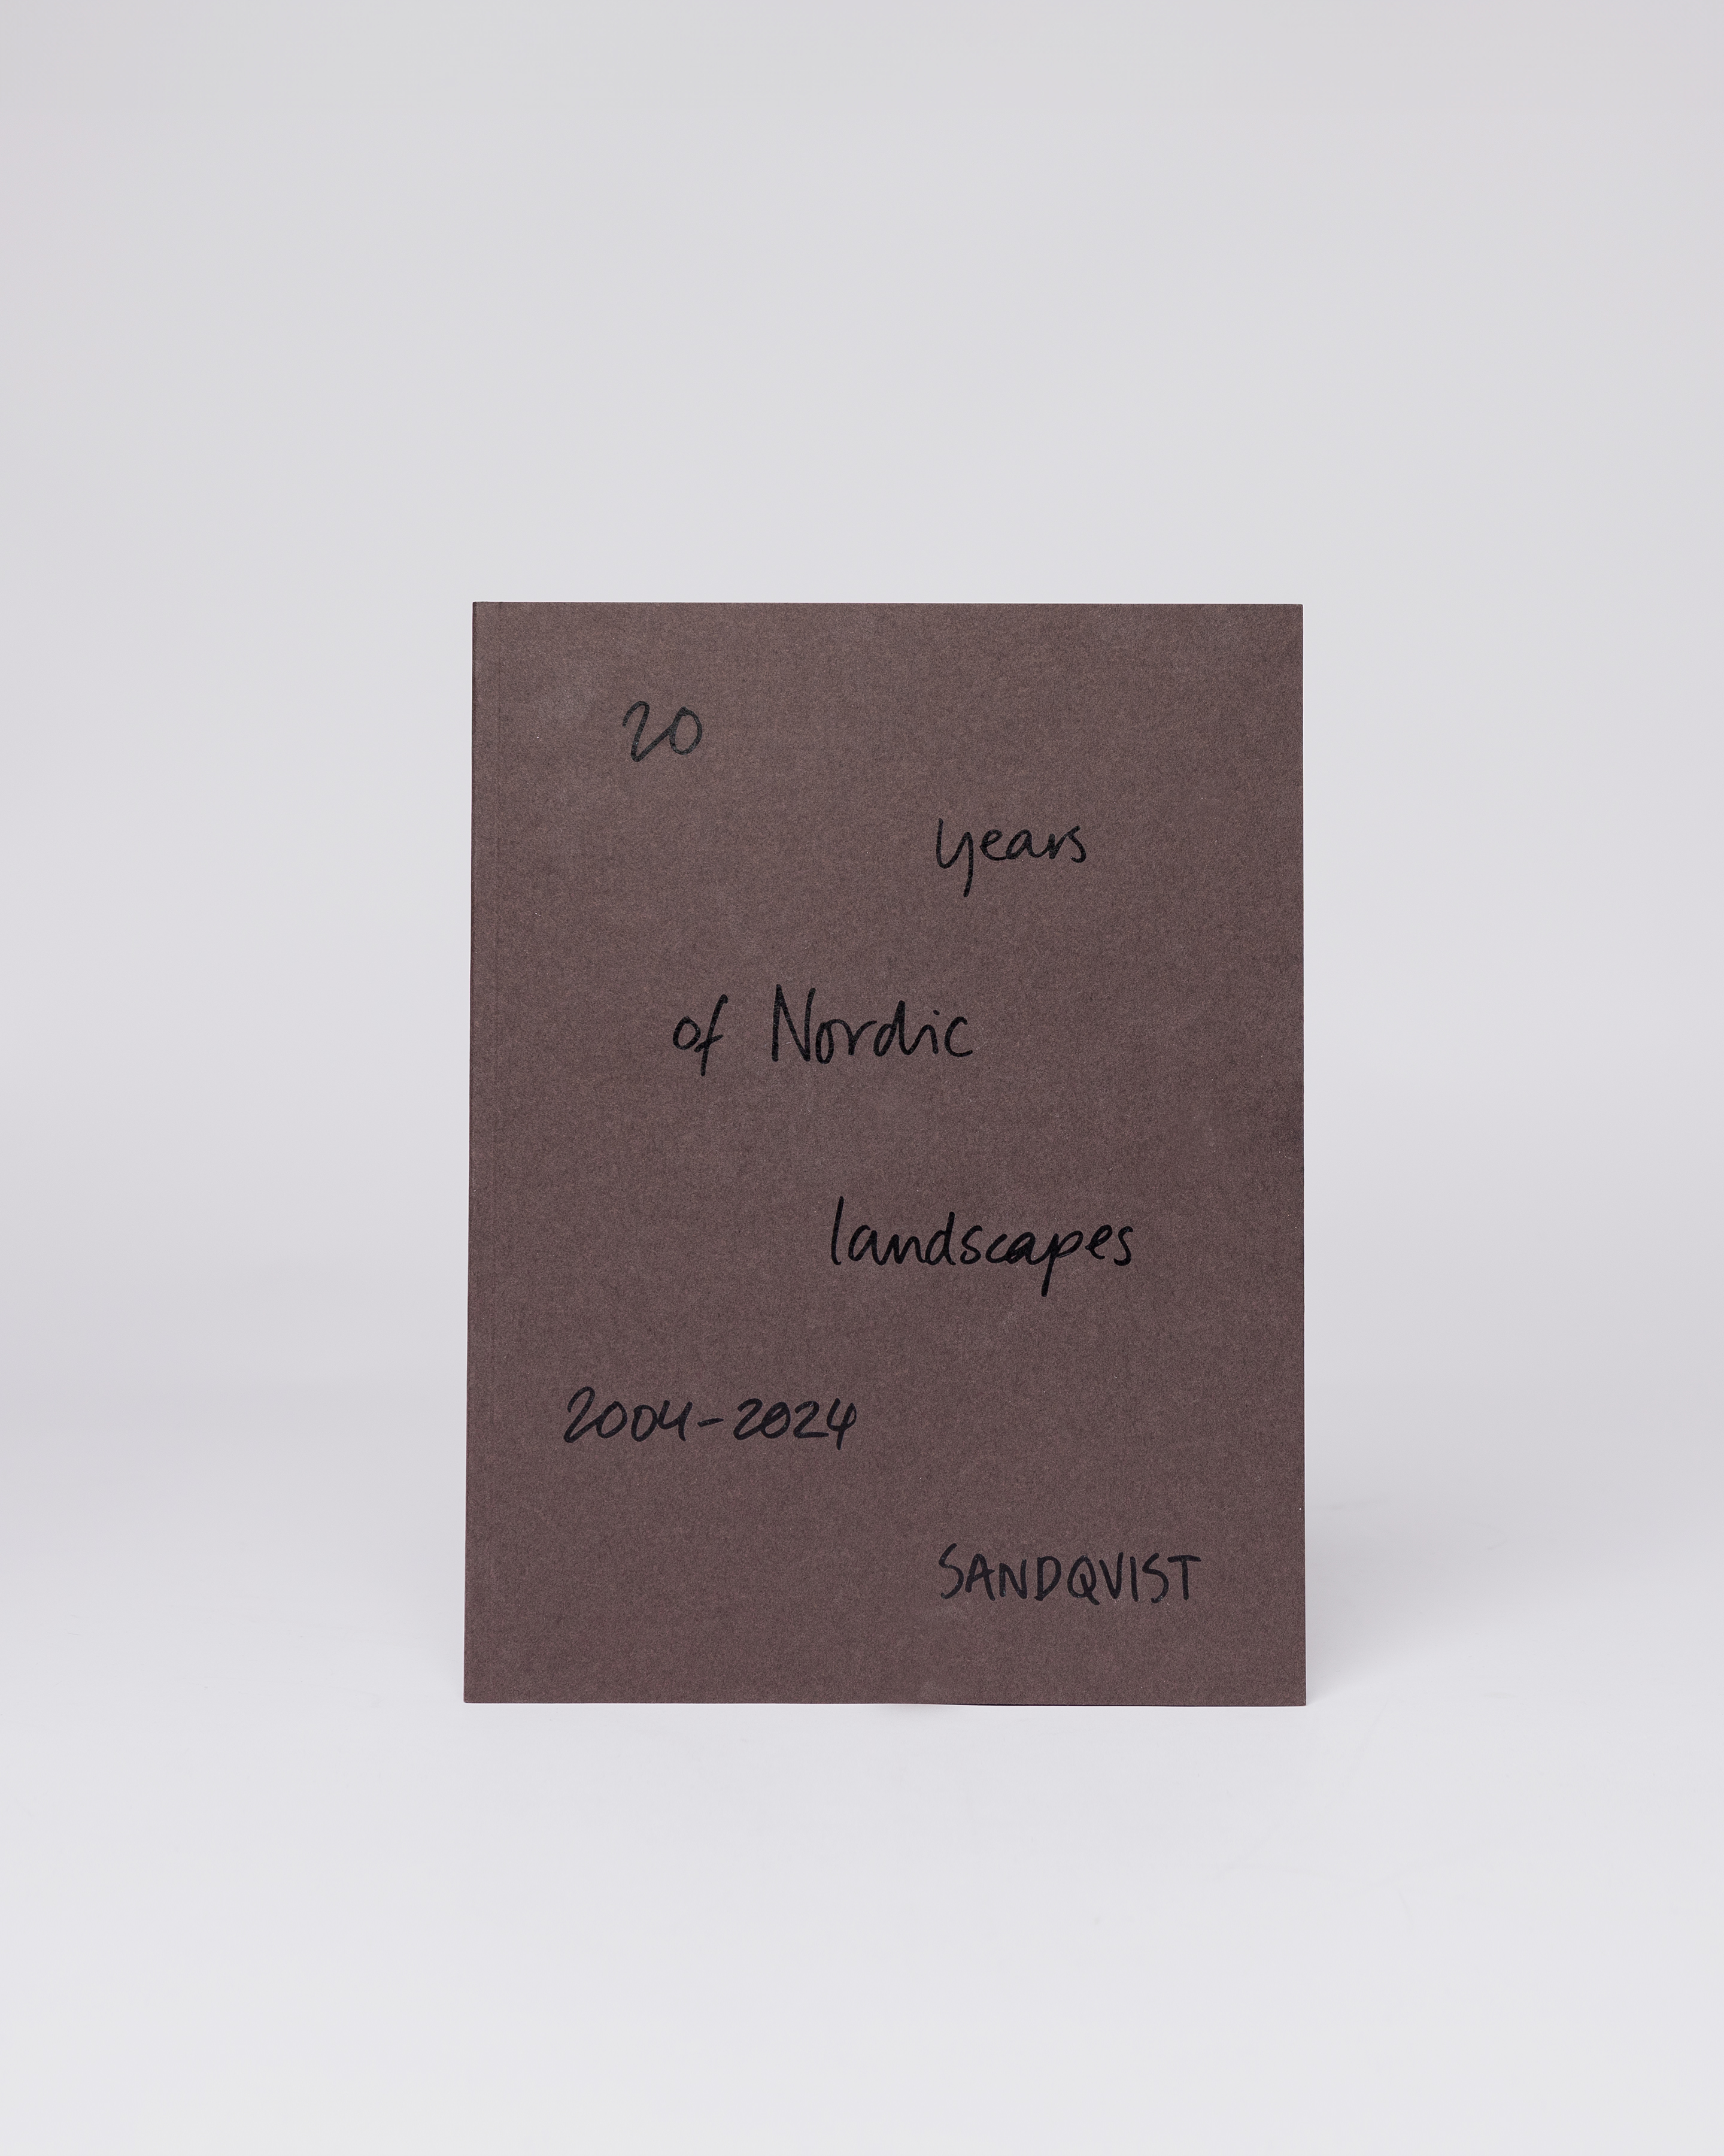 20
years
of Nordic
landscapes
2004-2024
SANDQVIST